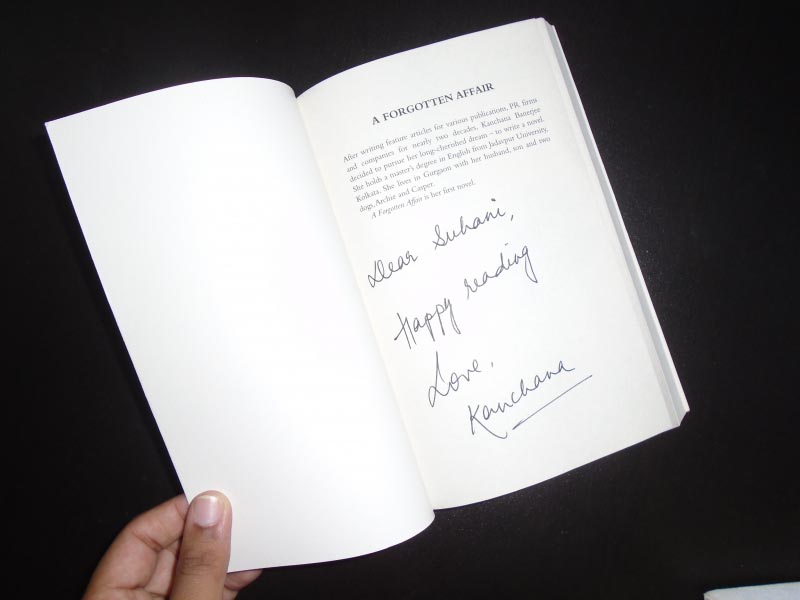 A FORGOTTEN AFFAIR
After writing feature articles for various publications, PR firms
and companies for nearly two decades, Kanchana Banerjee
decided to pursue her long-cherished dream – to write a novel.
She holds a master's degree in English from Jadavpur University,
Kolkata. She lives in Gurgaon with her husband, son and two
dogs, Archie and Casper.
A Forgotten Affair is her first novel.
Dear Suhani,
Happy reading
Love,
Kanchana